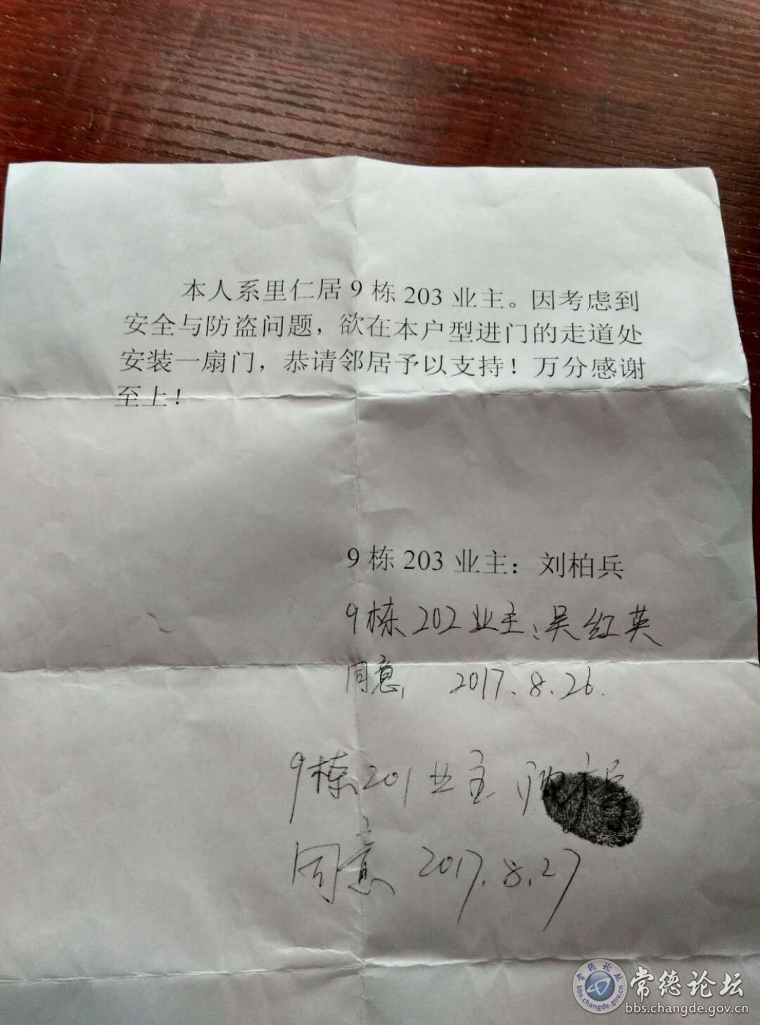 本人系里仁居9栋203业主。因考虑到
安全与防盗问题，欲在本户型进门的走道处
安装一扇门，恭请邻居予以支持！万分感谢
至上！
9栋203业主：刘柏兵
9栋202业主：吴红英
同意 2017.8.26
9栋201业主
同意 2017.8.27
常德论坛
常德论坛
bbs.changde.gov.cn